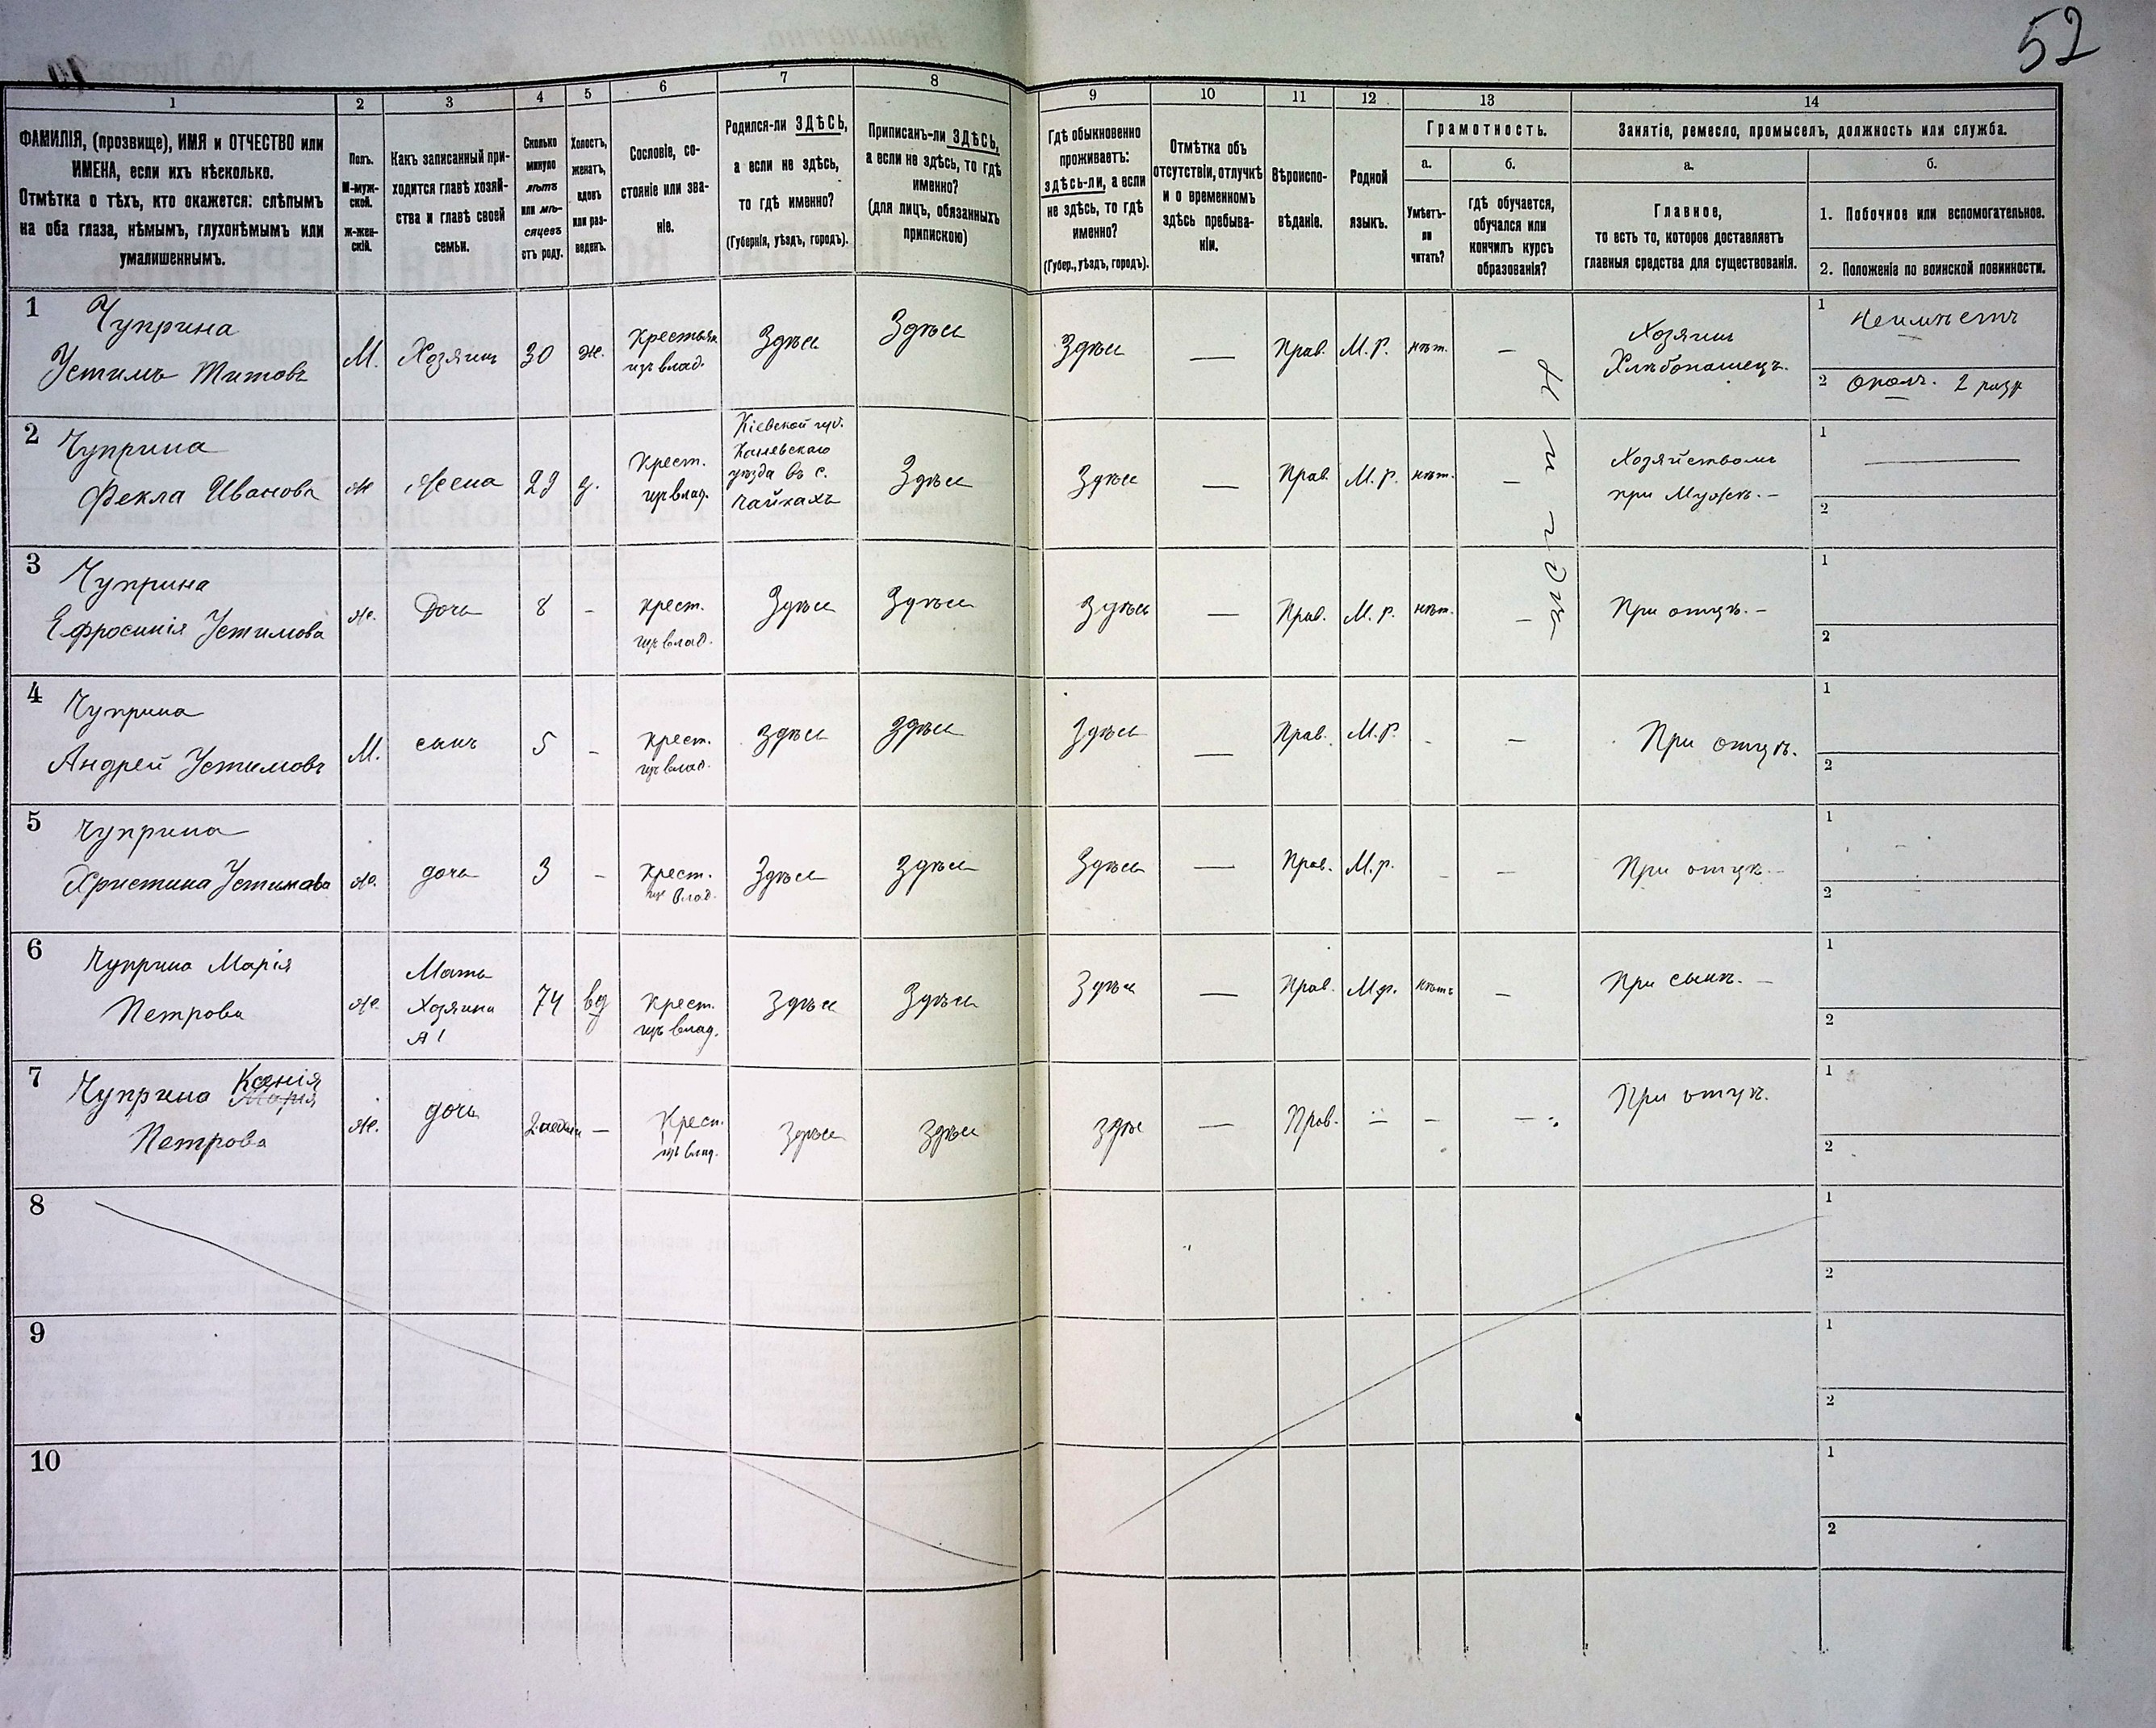 52
1 2 3 4 5 6 7 8 9 10 11 12 13 14
ФАМИЛІЯ, (прозвище), ИМЯ и ОТЧЕСТВО или
ИМЕНА, если ихъ нѣсколько.
Отмѣтка о тѣхъ, кто окажется: слѣпымъ
на оба глаза, нѣмымъ, глухонѣмымъ или
умалишеннымъ.
Полъ.
М-муж-
ской.
Ж-жен-
скій.
Какъ записанный при-
ходится главѣ хозяй-
ства и главѣ своей
семьи.
Сколько
минуло
лѣтъ
или мѣ-
сяцевъ
отъ роду.
Холостъ,
женатъ,
вдовъ
или раз-
веденъ.
Сословіе, со-
стояніе или зва-
ніе.
Родился-ли ЗДѢСЬ,
а если не здѣсь,
то гдѣ именно?
(Губернія, уѣздъ, городъ).
Приписанъ-ли ЗДѢСЬ,
а если не здѣсь, то гдѣ
именно?
(для лицъ, обязанныхъ
припискою)
Гдѣ обыкновенно
проживаетъ:
здѣсь-ли, а если
не здѣсь, то гдѣ
именно?
(Губер., уѣздъ, городъ).
Отмѣтка объ
отсутствіи, отлучкѣ
и о временномъ
здѣсь пребыва-
ніи.
Вѣроиспо-
вѣданіе.
Родной
языкъ.
Грамотность.
а.
Умѣетъ-
ли
читать?
б.
гдѣ обучается,
обучался или
кончилъ курсъ
образованія?
Занятіе, ремесло, промыселъ, должность или служба.
а.
Главное,
то есть то, которое доставляетъ
главныя средства для существованія.
б.
1. Побочное или вспомогательное.
2. Положеніе по воинской повинности.
1
Чуприна
Устимъ Титовъ
М.
Хозяинъ
30
ж.
Крестьян
изъ влад.
Здѣсь
Здѣсь
Здѣсь
—
Прав.
М.Р.
нѣт.
—
Хозяинъ
Хлѣбопашецъ.
1 Неимѣетъ
2 Ополч. 2 разр
2
Чуприна
Фекла Иванова
ж
Жена
29
з.
Крест.
изъ влад.
Кіевской губ.
Каневскаго
уѣзда въ с.
Чайкахъ
Здѣсь
Здѣсь
—
Прав.
М.Р.
нѣт.
—
Хозяйствомъ
при Мужѣ. -
1 —
2
3
Чуприна
Ефросинія Устимова
ж.
Дочь
8
-
крест.
изъ влад.
Здѣсь
Здѣсь
Здѣсь
—
Прав.
М.Р.
нѣт.
-
При отцѣ. -
1
2
4
Чуприна
Андрей Устимовъ
М.
сынъ
5
-
крест.
изъ влад.
здѣсь
здѣсь
Здѣсь
—
Прав.
М.Р.
-
—
При отцѣ.
1
2
5
Чуприна
Христина Устимова
ж.
дочь
3
-
крест.
изъ влад.
Здѣсь
Здѣсь
Здѣсь
—
Прав.
М.р.
-
—
При отцѣ. -
1
2
6
Чуприна Марія
Петрова
ж.
Мать
Хозяина
74
вд
крест.
изъ влад.
здѣсь
Здѣсь
Здѣсь
—
Прав.
М.р.
нѣтъ
—
При сынѣ. -
1
2
7
Чуприна Ксенія
Марія
Петрова
ж.
дочь
—
Крест.
изъ влад.
здѣсь
здѣсь
здѣс
—
Прав.
—
—
—
При отцѣ.
1
2
Нигдѣ
8
1
2
9
1
2
10
1
2